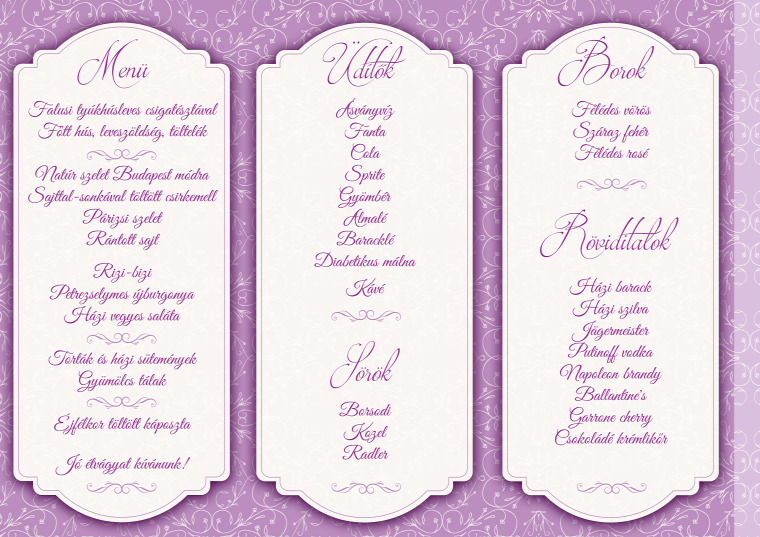 Menü
Falusi tyúkhúsleves csigatésztával
Főtt hús, leveszöldség, töltelék
Natúr szelet Budapest módra
Sajttal-sonkával töltött csirkemell
Párizsi szelet
Rántott sajt
Rizi-bizi
Petrezselymes újburgonya
Házi vegyes saláta
Torták és házi sütemények
Gyümölcs tálak
Éjfélkor töltött káposzta
Jó étvágyat kívánunk!
Üdítők
Ásványvíz
Fanta
Cola
Sprite
Gyömbér
Almalé
Baracklé
Diabetikus málna
Kávé
Sörök
Borsodi
Kozel
Radler
Borok
Félédes vörös
Száraz fehér
Félédes rosé
Röviditalok
Házi barack
Házi szilva
Jägermeister
Putinoff vodka
Napoleon brandy
Ballantine's
Garrone cherry
Csokoládé krémlikőr